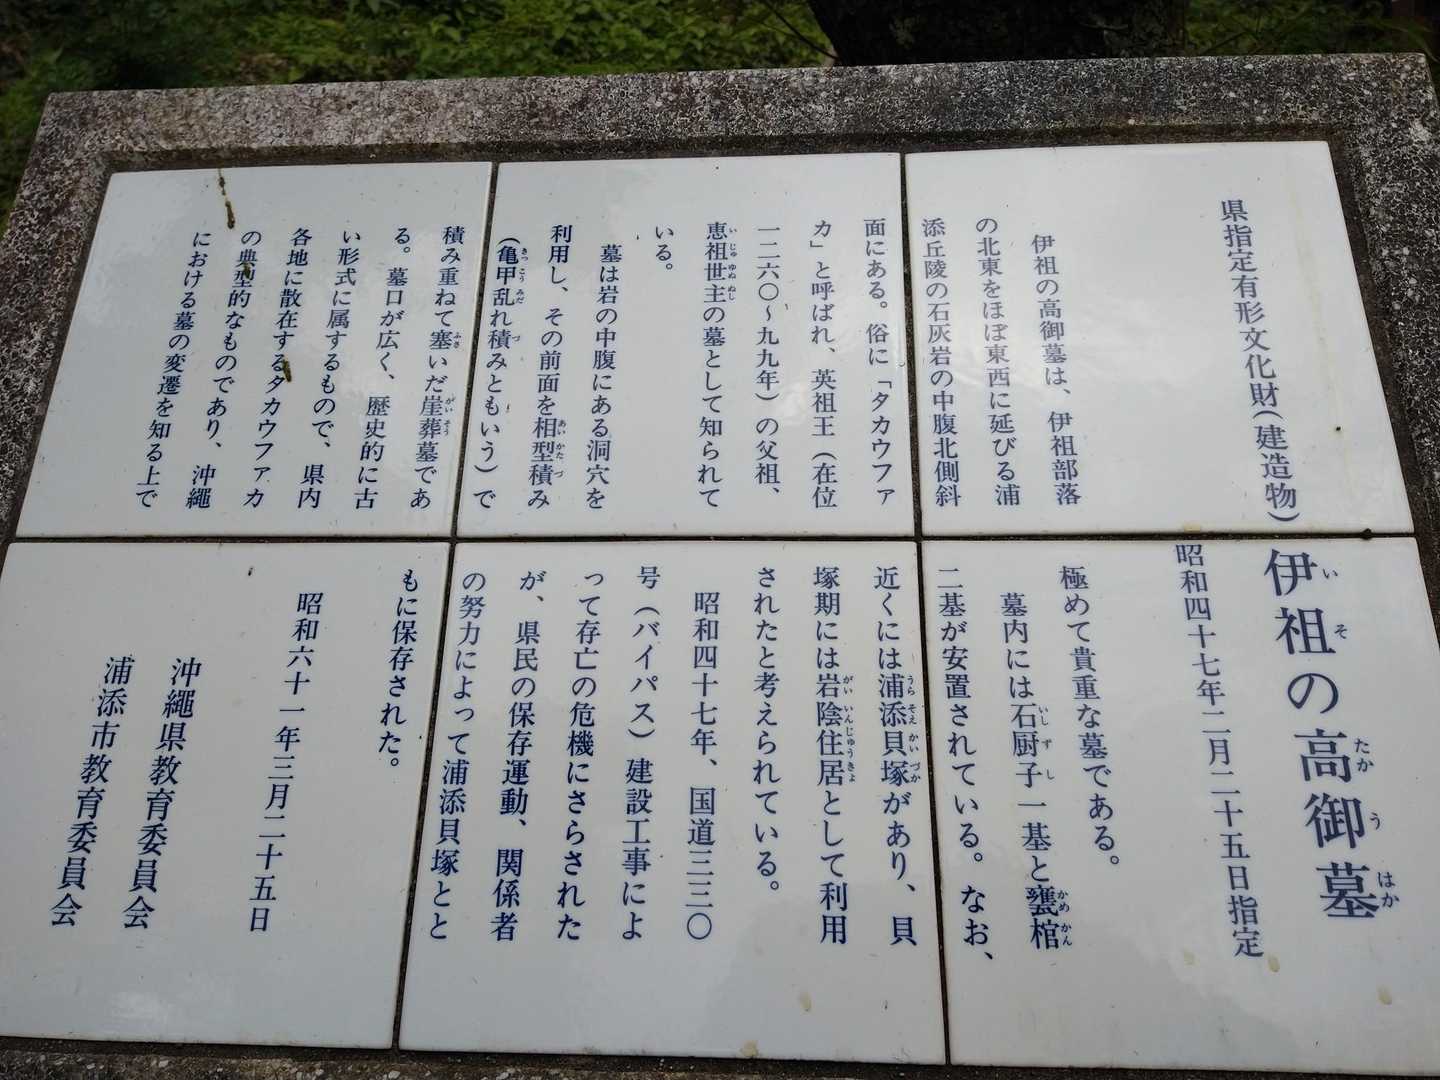 県指定有形文化財(建造物)
伊祖の高御墓
昭和四十七年二月二十五日指定
伊祖の高御墓は、伊祖部落
の北東をほぼ東西に延びる浦
添丘陵の石灰岩の中腹北側斜
面にある。俗に「タカウファ
カ」と呼ばれ、英祖王(在位
一二六〇~九九年)の父祖、
恵祖世主の墓として知られて
いる。
墓は岩の中腹にある洞穴を
利用し、その前面を相型積み
(亀甲乱れ積みともいう)で
積み重ねて塞いだ崖葬墓であ
る。墓口が広く、歴史的に古
い形式に属するもので、県内
各地に散在するタカウファカ
の典型的なものであり、沖繩
における墓の変遷を知る上で
極めて貴重な墓である。
墓内には石厨子一基と甕棺
二基が安置されている。なお、
近くには浦添貝塚があり、貝
塚期には岩陰住居として利用
されたと考えられている。
昭和四十七年、国道三三〇
号(バイパス)建設工事によ
って存亡の危機にさらされた
が、県民の保存運動、関係者
の努力によって浦添貝塚とと
もに保存された。
昭和六十一年三月二十五日
沖繩県教育委員会
浦添市教育委員会